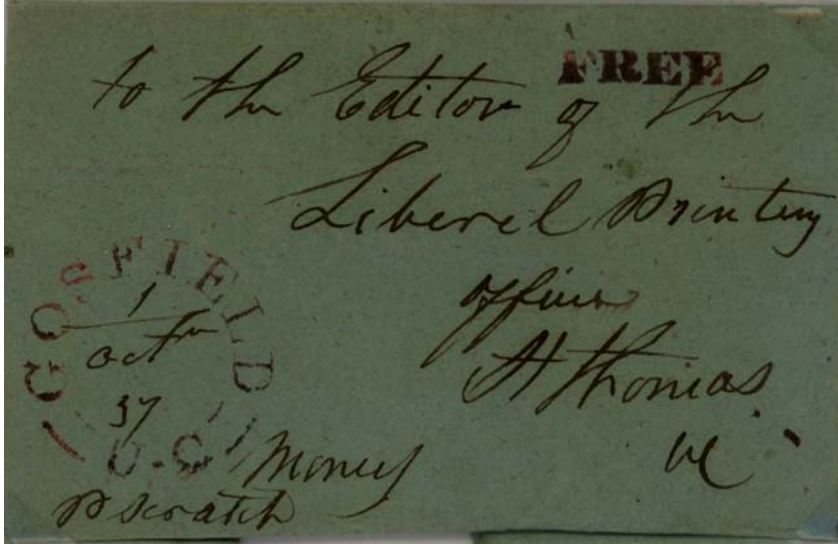 FREE
to the Editor of the
Liberel Printing
office
St Thomas
UC
GOSFIELD
1
Octr
37
U.C
Money
P Scratch